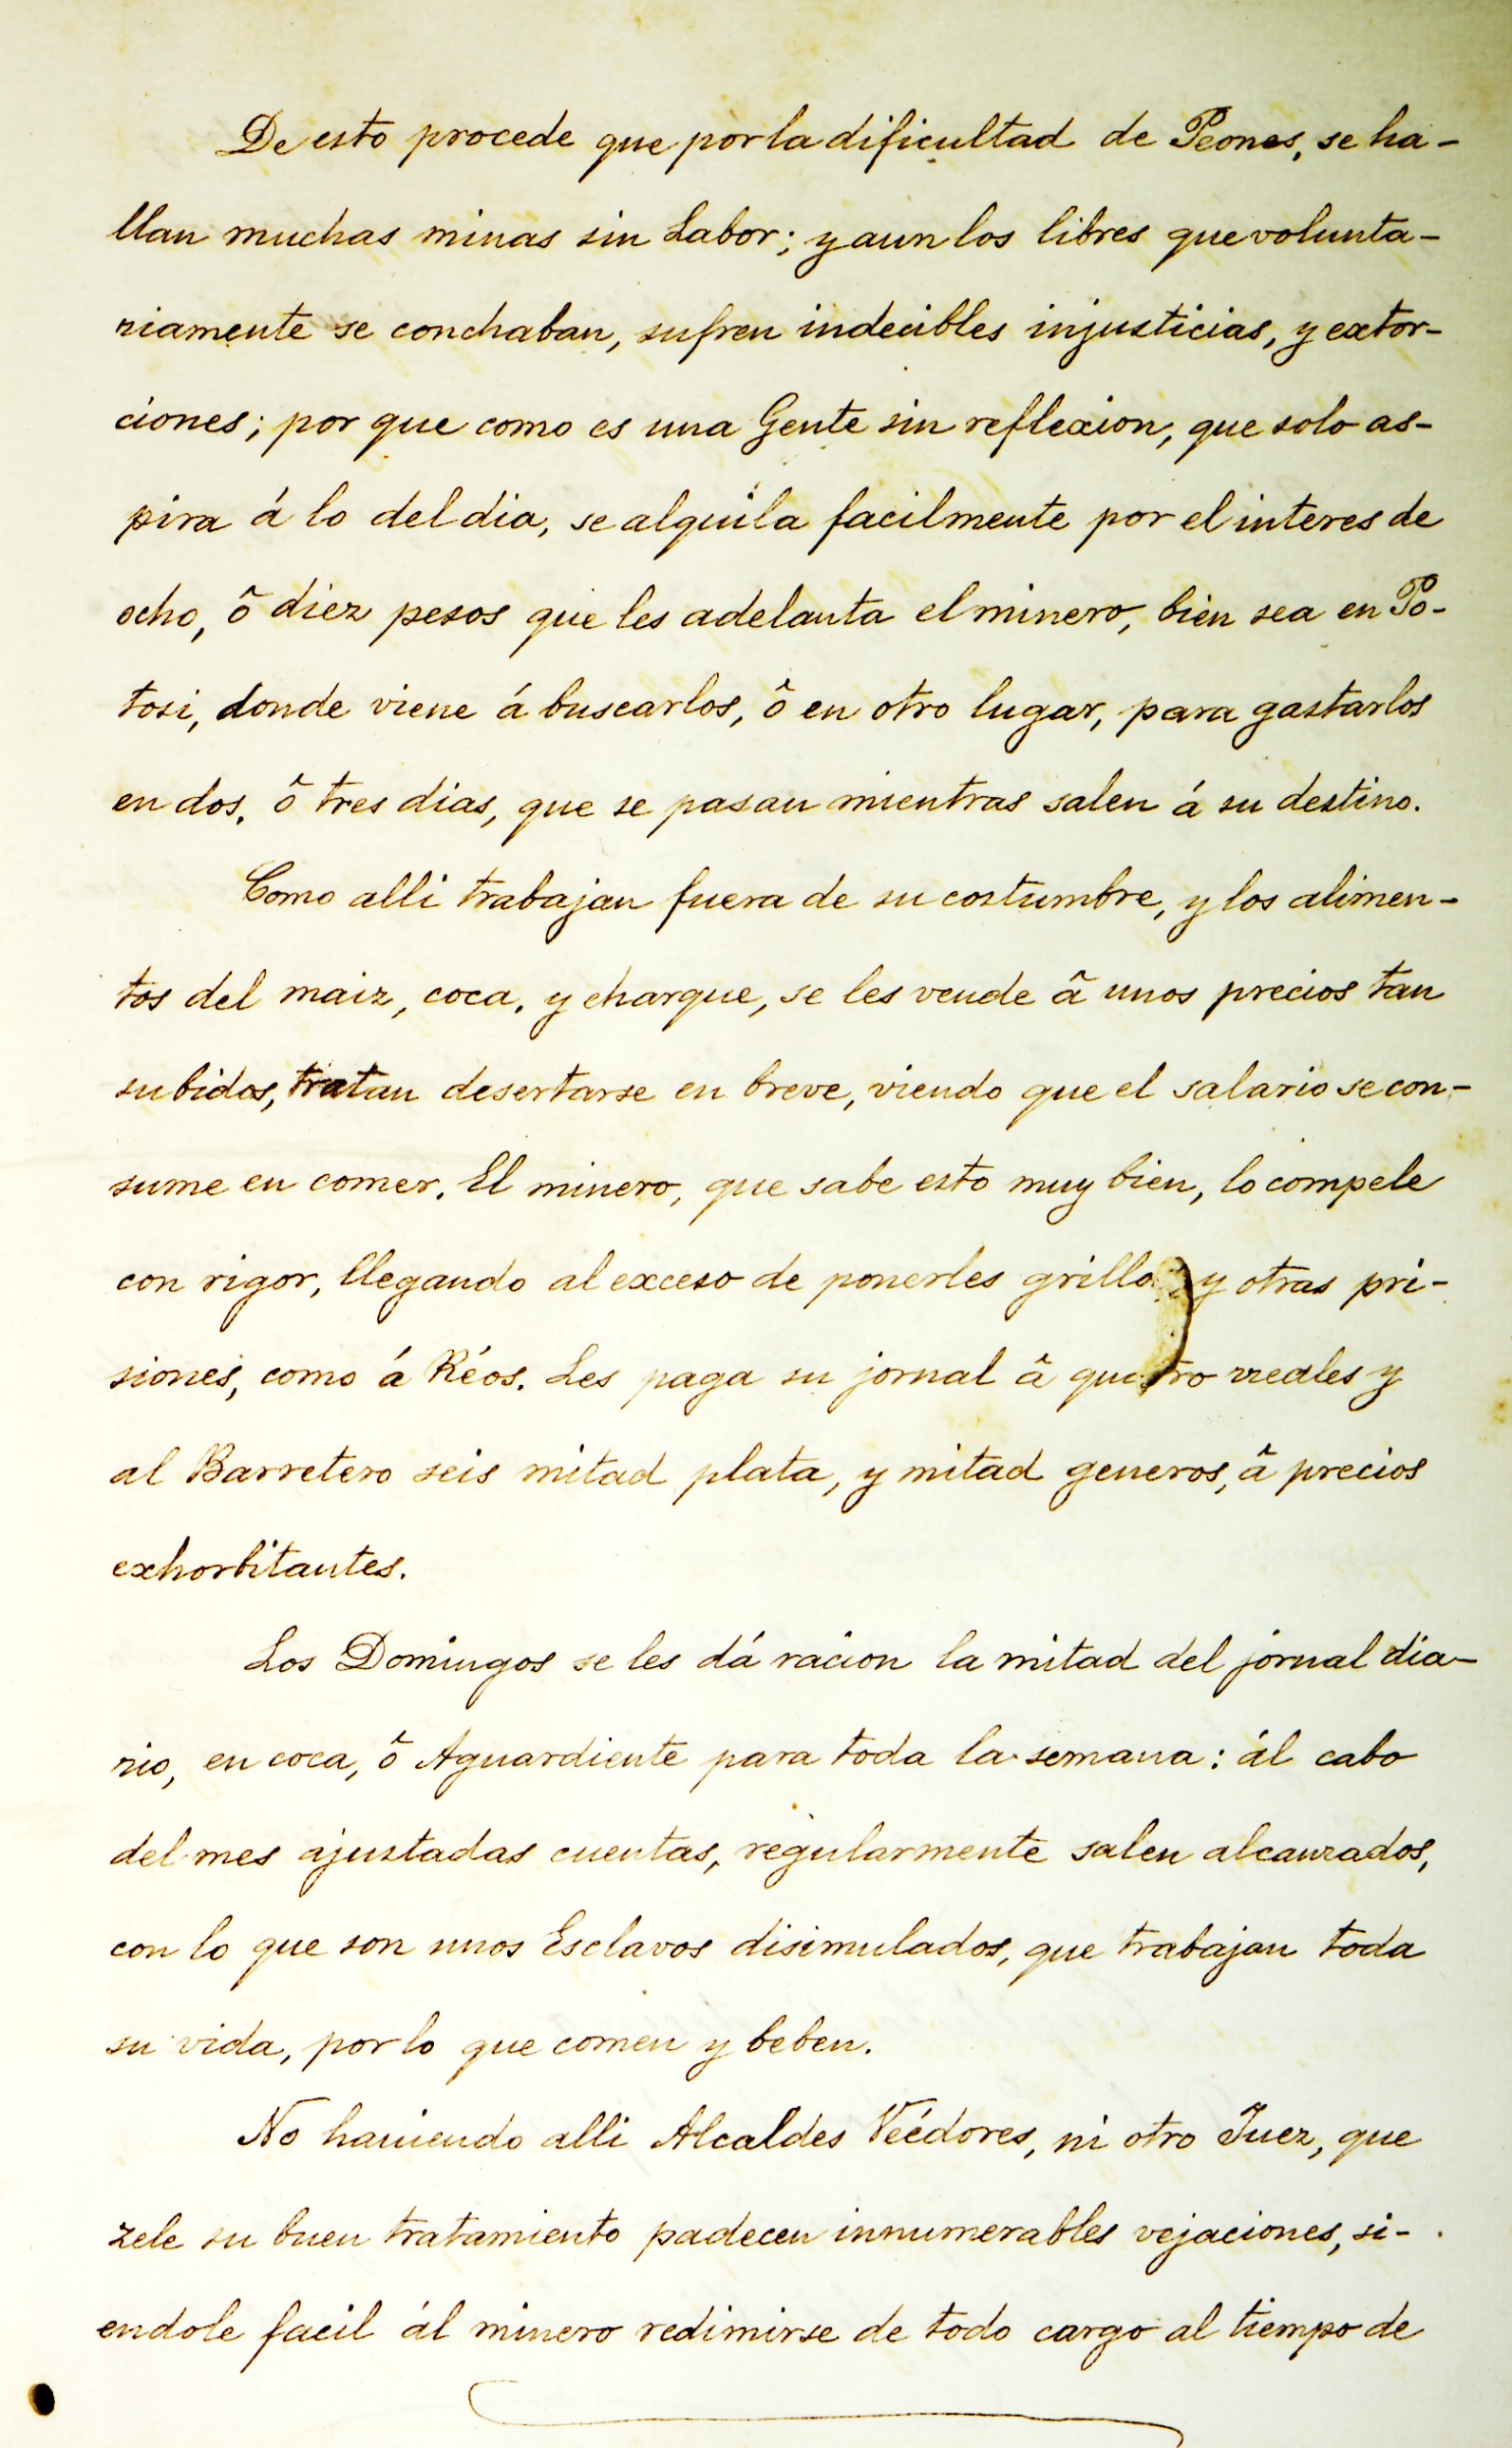 De esto procede que por la dificultad de Peones, se ha-
llan muchas minas sin Labor; y aun los libres que volunta-
riamente se conchaban, sufren indecibles injusticias, y extor-
ciones; por que como es una Gente sin reflexion, que solo as-
pira á lo del dia, se alquila facilmente por el interes de
ocho, ô diez pesos que les adelanta el minero, bien sea en Po-
tosi, donde viene á buscarlos, ô en otro lugar, para gastarlos
en dos, ô tres dias, que se pasan mientras salen á su destino.
Como alli trabajan fuera de su costumbre, y los alimen-
tos del maiz, coca, y charque, se les vende â unos precios tan
subidos, tratan desertarse en breve, viendo que el salario se con-
sume en comer. El minero, que sabe esto muy bien, lo compele
con rigor, llegando al exceso de ponerles grillos y otras pri-
siones, como á Réos. Les paga su jornal â quatro rreales y
al Barretero seis mitad plata, y mitad generos, â precios
exhorbitantes.
Los Domingos se les dá racion la mitad del jornal dia-
rio, en coca, ô Aguardiente para toda la semana: ál cabo
del mes ajustadas cuentas, regularmente salen alcanzados,
con lo que son unos Esclavos disimulados, que trabajan toda
su vida, por lo que comen y beben.
No haviendo alli Alcaldes Veédores, ni otro Juez, que
zele su buen tratamiento padecen innumerables vejaciones, si-
endole facil ál minero redimirse de todo cargo al tiempo de